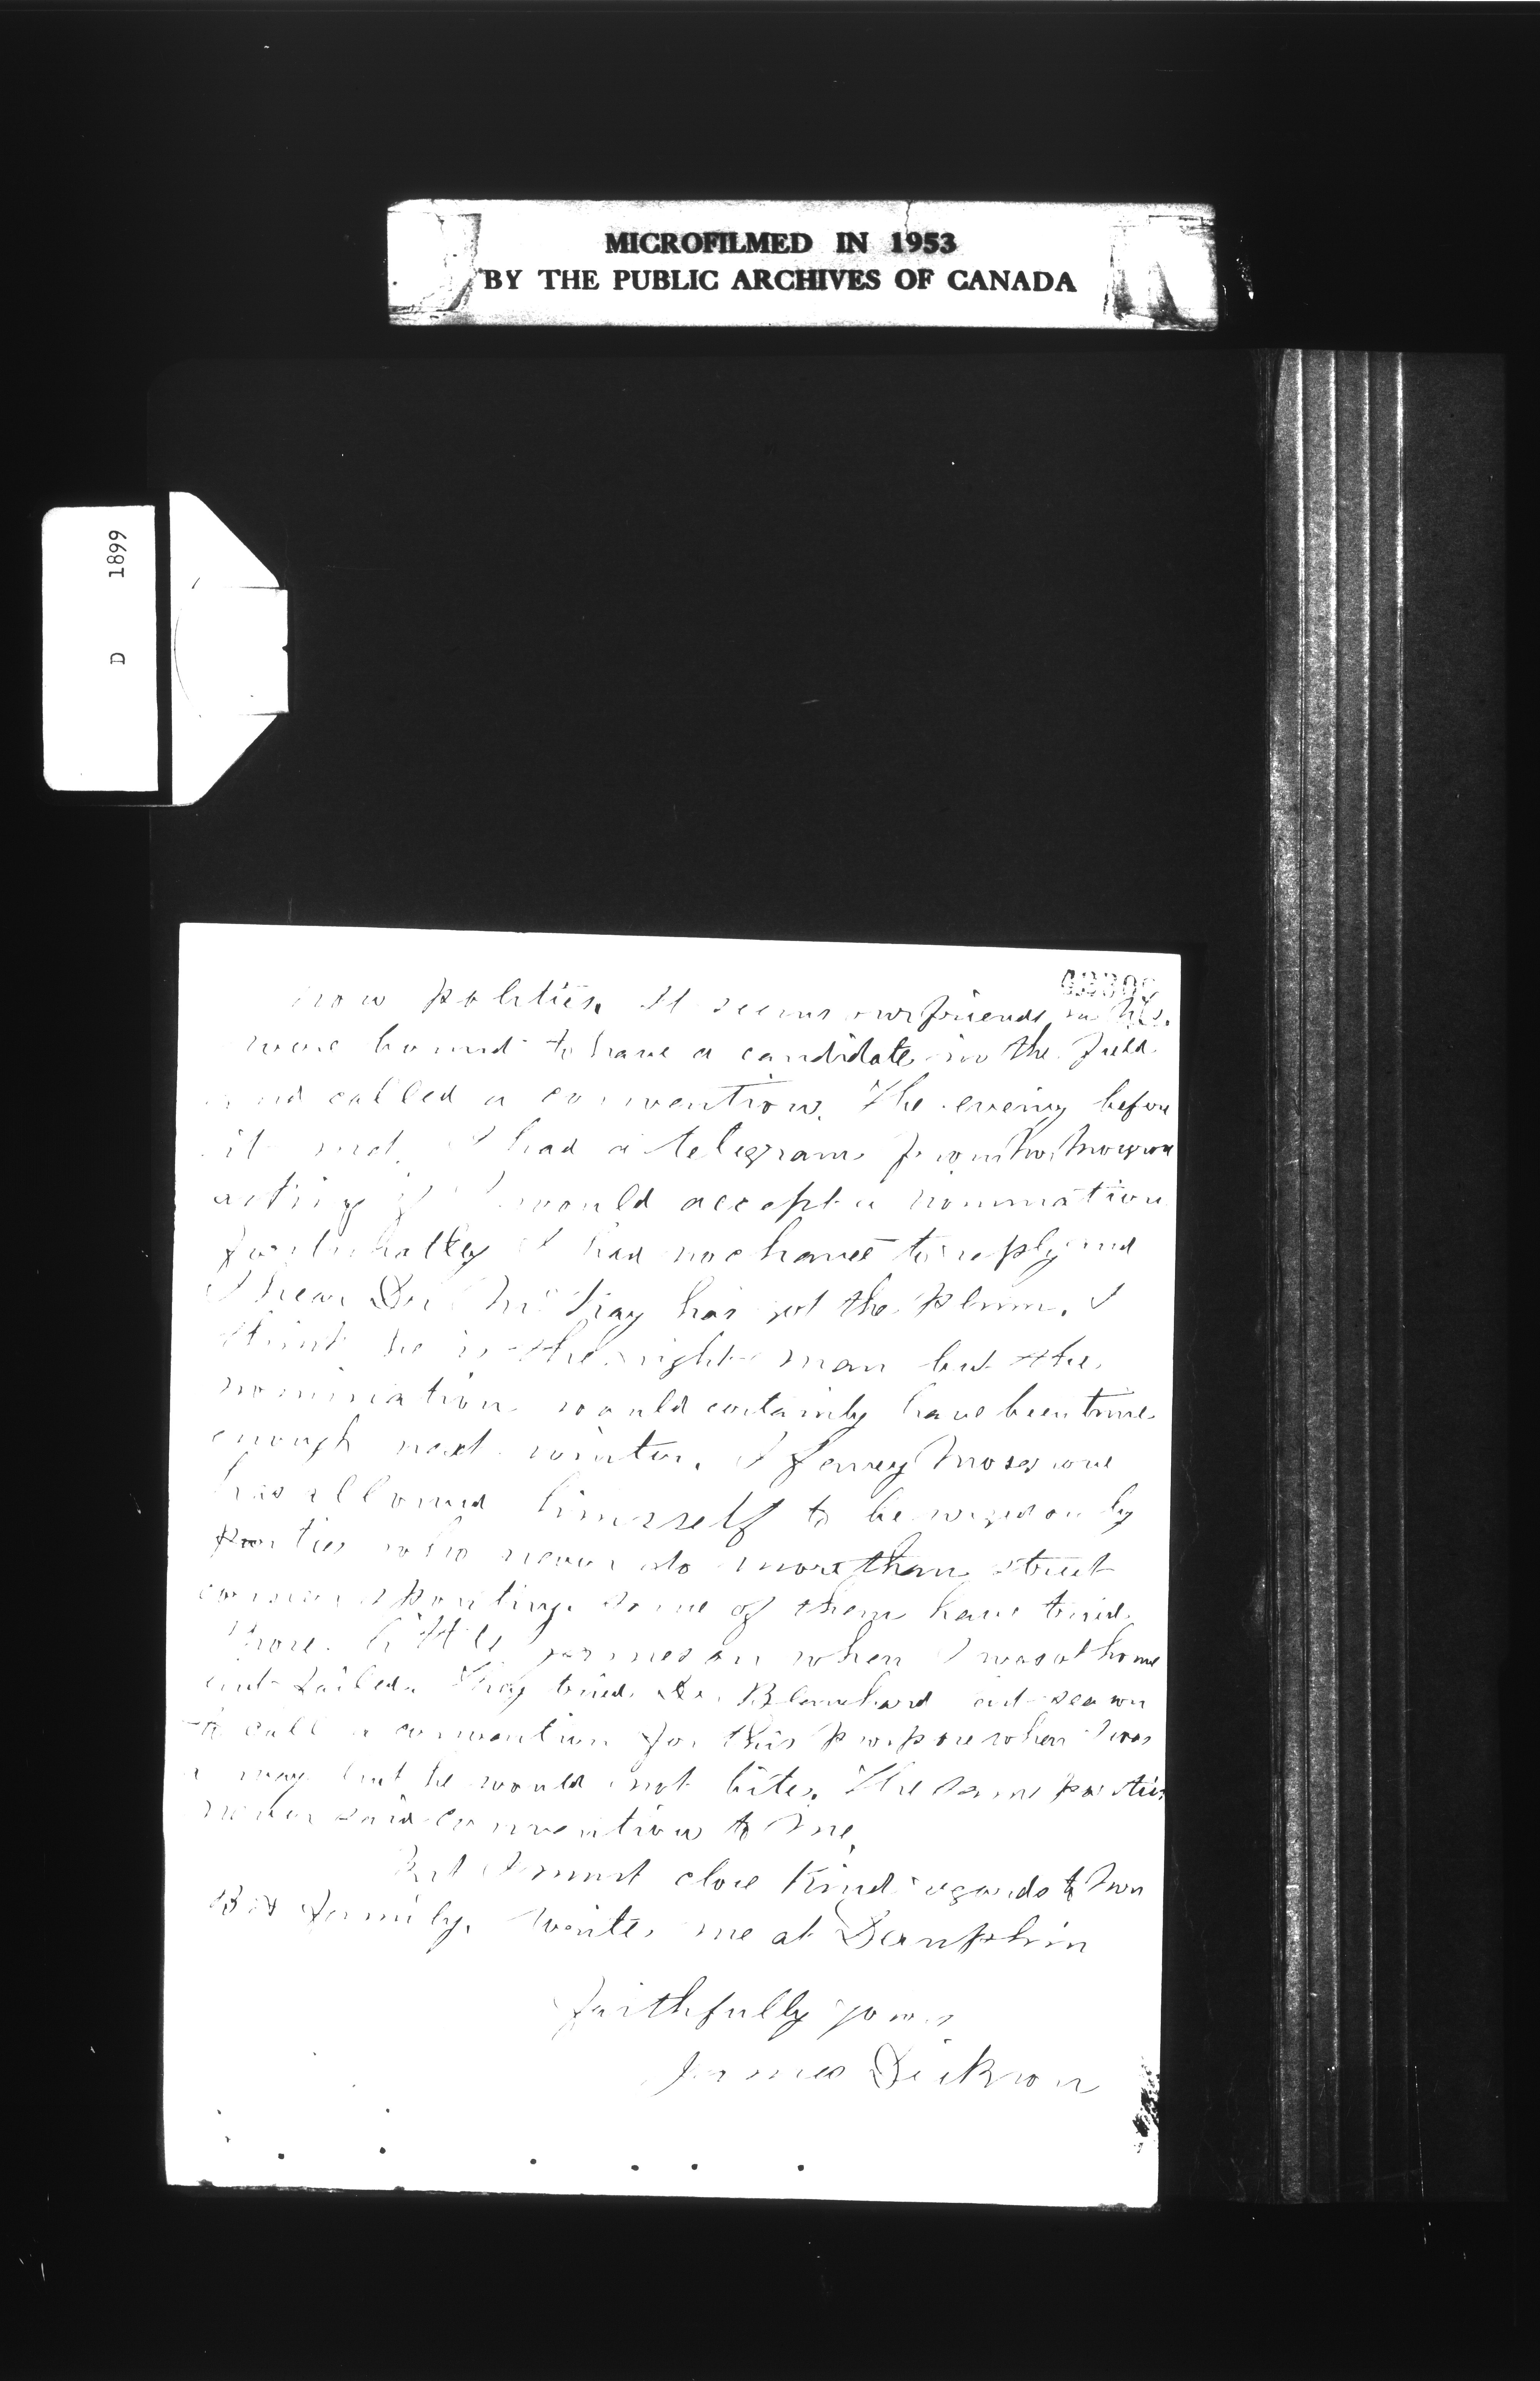 MICROFILMED IN 1953
BY THE PUBLIC ARCHIVES OF CANADA
D 1899
now politics. It seems our friends in
were bound to have a candidate in the field
and called a convention. The evening before
it met, I had a telegram from
asking if I would accept a nomination
I had no chance to reply and
I hear has got the plum. I
think he is the right man but the
nomination would certainly have been time
enough next winter. I fancy
has allowed himself to be urged on by
parties who never do more than street
corner spouting. Some of them have tried
little games on when I was at home
and failed. They tried Dr. Blanchard last season
to call a convention for this purpose when I was
away but he would not bite. The same parties
never said convention to me.
But I must close Kind regards to Mrs
B & family. Write me at Dauphin
Faithfully yours
James Dickson